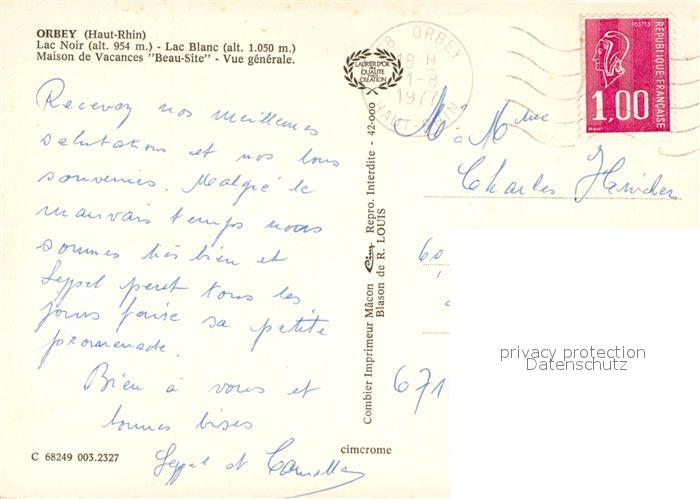 ORBEY (Haut-Rhin)
Lac Noir (alt. 954 m.) - Lac Blanc (alt. 1.050 m.)
Maison de Vacances "Beau-Site" - Vue générale.
Recevez nos meilleures
salutations et nos bons
souvenirs. Malgré le
mauvais temps nous
sommes très bien et
Seppel peut tous les
jours faire sa petite
promenade.
Bien à vous et
bonnes bises
Seppel et
C 68249 003.2327
cimcrome
Combier Imprimeur Mâcon Cim Repro. Interdite - 42-000
Blason de R. LOUIS
LAURIER D'OR
DE LA
QUALITÉ
CRÉATION
68 ORBEY
18 H
1-8
1977
HAUT-RHIN
POSTES
RÉPUBLIQUE FRANÇAISE
1,00
M. & Mme
Charles
60
671
privacy protection
Datenschutz